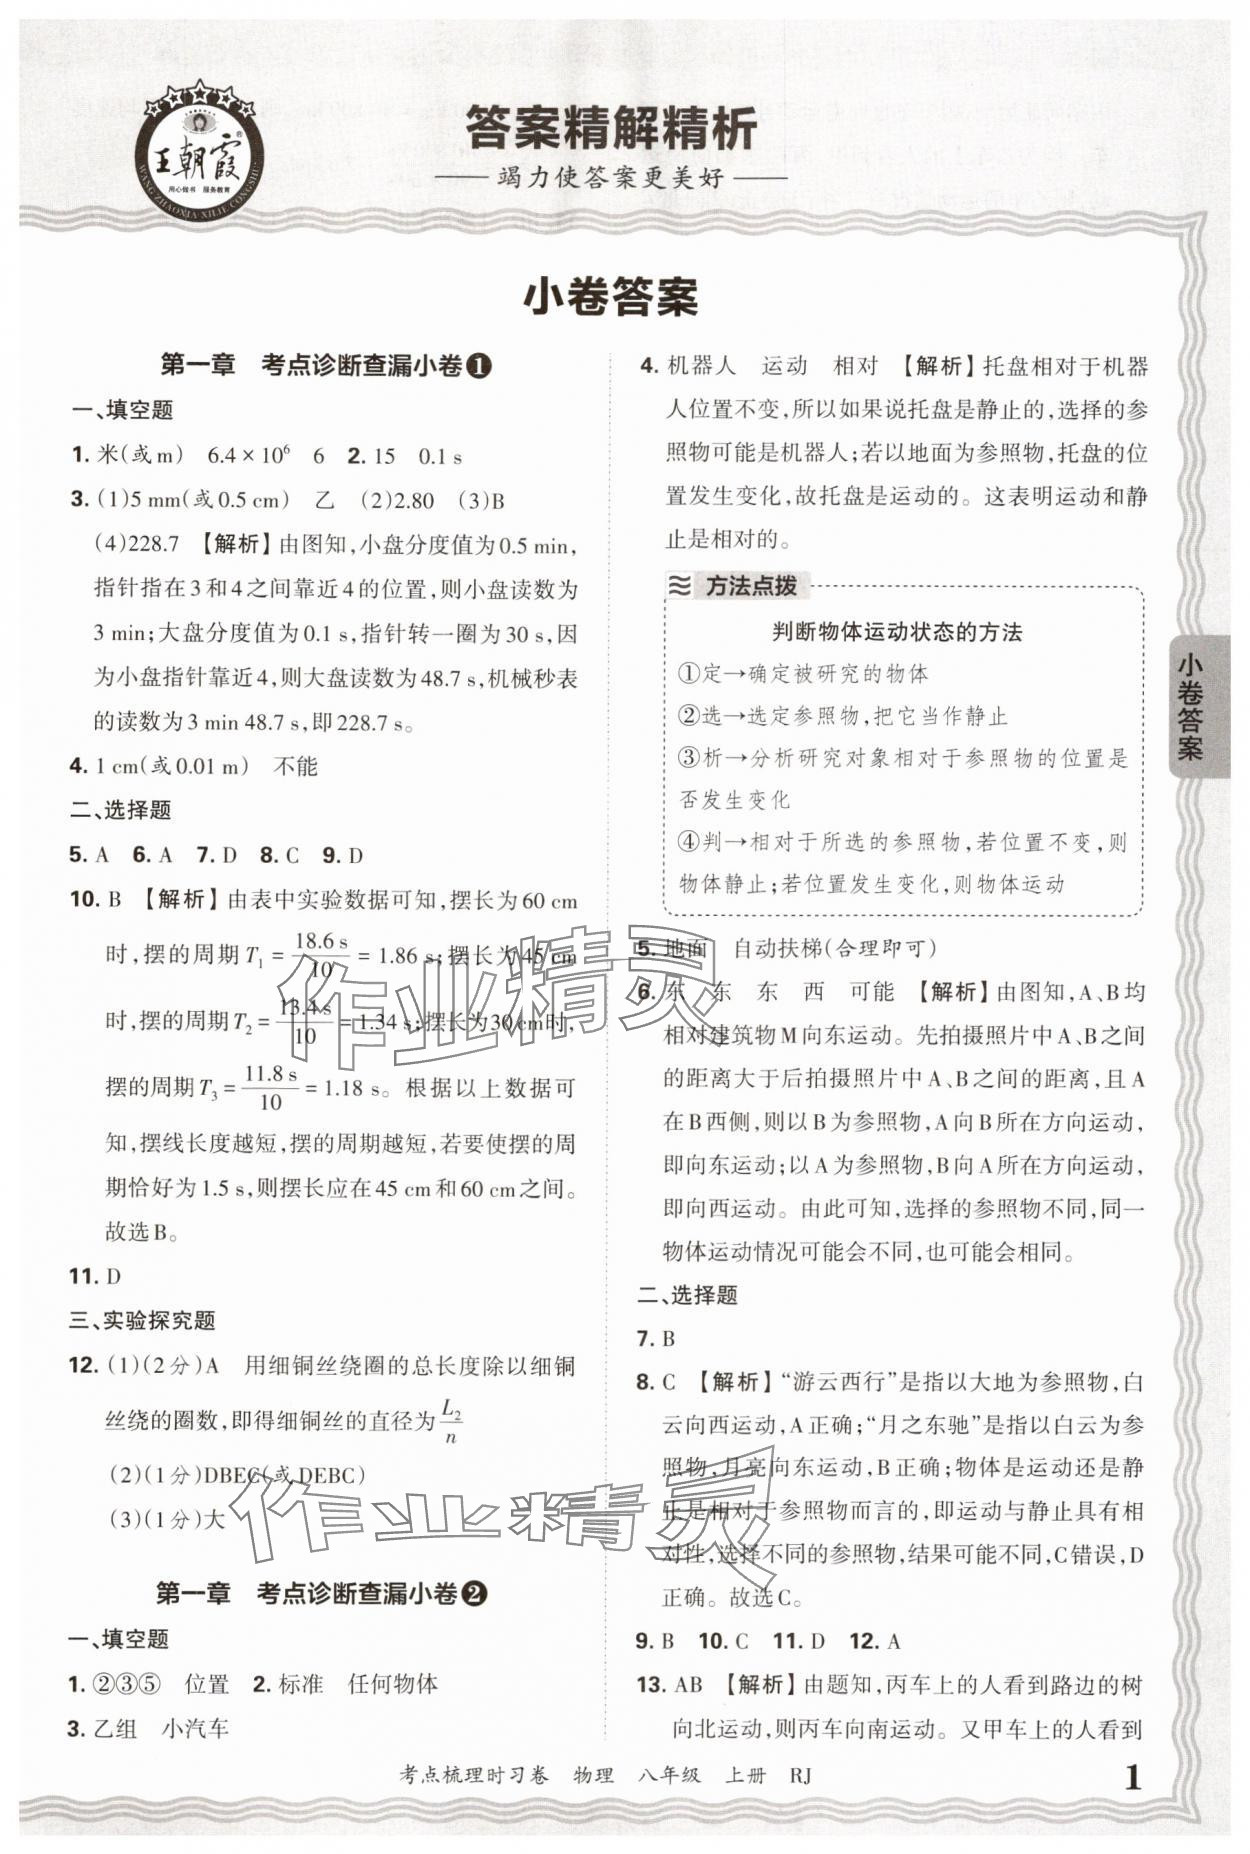 王朝霞
用心做书 服务教育
WANG ZHAOXIA XILIE CONGSHU
答案精解精析
竭力使答案更美好
小卷答案
第一章 考点诊断查漏小卷❶
一、填空题
1. 米(或m) 6.4×10⁶ 6 2. 15 0.1 s
3. (1)5 mm(或0.5 cm) 乙 (2)2.80 (3)B
(4)228.7 【解析】由图知,小盘分度值为0.5 min,
指针指在3和4之间靠近4的位置,则小盘读数为
3 min;大盘分度值为0.1 s,指针转一圈为30 s,因
为小盘指针靠近4,则大盘读数为48.7 s,机械秒表
的读数为3 min 48.7 s,即228.7 s。
4. 1 cm(或0.01 m) 不能
二、选择题
5. A 6. A 7. D 8. C 9. D
10. B 【解析】由表中实验数据可知,摆长为60 cm
时,摆的周期T₁=18.6 s/10=1.86 s;摆长为45 cm
时,摆的周期T₂=13.4 s/10=1.34 s;摆长为30 cm时,
摆的周期T₃=11.8 s/10=1.18 s。根据以上数据可
知,摆线长度越短,摆的周期越短,若要使摆的周
期恰好为1.5 s,则摆长应在45 cm和60 cm之间。
故选B。
11. D
三、实验探究题
12. (1)(2分)A 用细铜丝绕圈的总长度除以细铜
丝绕的圈数,即得细铜丝的直径为L₂/n
(2)(1分)DBEC(或DEBC)
(3)(1分)大
第一章 考点诊断查漏小卷❷
一、填空题
1. ②③⑤ 位置 2. 标准 任何物体
3. 乙组 小汽车
4. 机器人 运动 相对 【解析】托盘相对于机器
人位置不变,所以如果说托盘是静止的,选择的参
照物可能是机器人;若以地面为参照物,托盘的位
置发生变化,故托盘是运动的。这表明运动和静
止是相对的。
方法点拨
判断物体运动状态的方法
①定→确定被研究的物体
②选→选定参照物,把它当作静止
③析→分析研究对象相对于参照物的位置是
否发生变化
④判→相对于所选的参照物,若位置不变,则
物体静止;若位置发生变化,则物体运动
5. 地面 自动扶梯(合理即可)
6. 东 东 东 西 可能 【解析】由图知,A、B均
相对建筑物M向东运动。先拍摄照片中A、B之间
的距离大于后拍摄照片中A、B之间的距离,且A
在B西侧,则以B为参照物,A向B所在方向运动,
即向东运动;以A为参照物,B向A所在方向运动,
即向西运动。由此可知,选择的参照物不同,同一
物体运动情况可能会不同,也可能会相同。
二、选择题
7. B
8. C 【解析】“游云西行”是指以大地为参照物,白
云向西运动,A正确;“月之东驰”是指以白云为参
照物,月亮向东运动,B正确;物体是运动还是静
止是相对于参照物而言的,即运动与静止具有相
对性,选择不同的参照物,结果可能不同,C错误,D
正确。故选C。
9. B 10. C 11. D 12. A
13. AB 【解析】由题知,丙车上的人看到路边的树
向北运动,则丙车向南运动。又甲车上的人看到
小卷答案
作业精灵
作业精灵
考点梳理时习卷 物理 八年级 上册 RJ
1